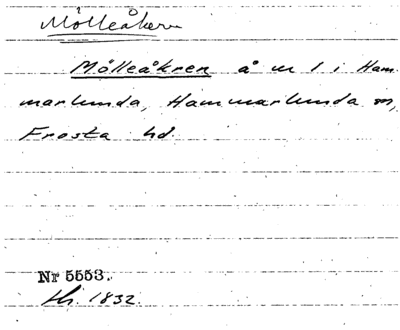 Mölleåkern
Mölleåkren å nr 1 i Ham-
marlunda, Hammarlunda sn,
Frosta hd.
Nr 5553.
1832.